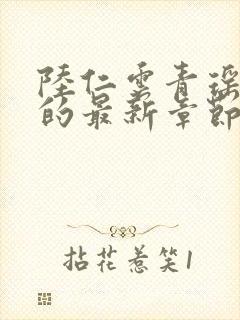 陸仁雲青瑶
的最新章節
拈花惹笑1